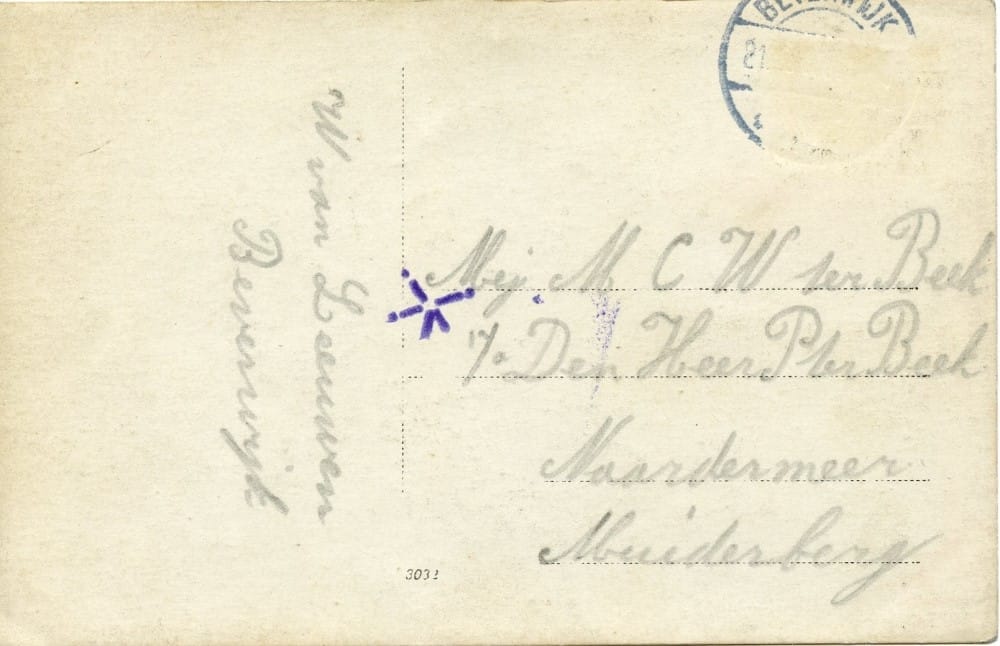 W van Leeuwen
Beverwijk
BEVERWIJK
21
Mej M C W ter Beek
Den Heer P ter Beek
Naardermeer
Muiderberg